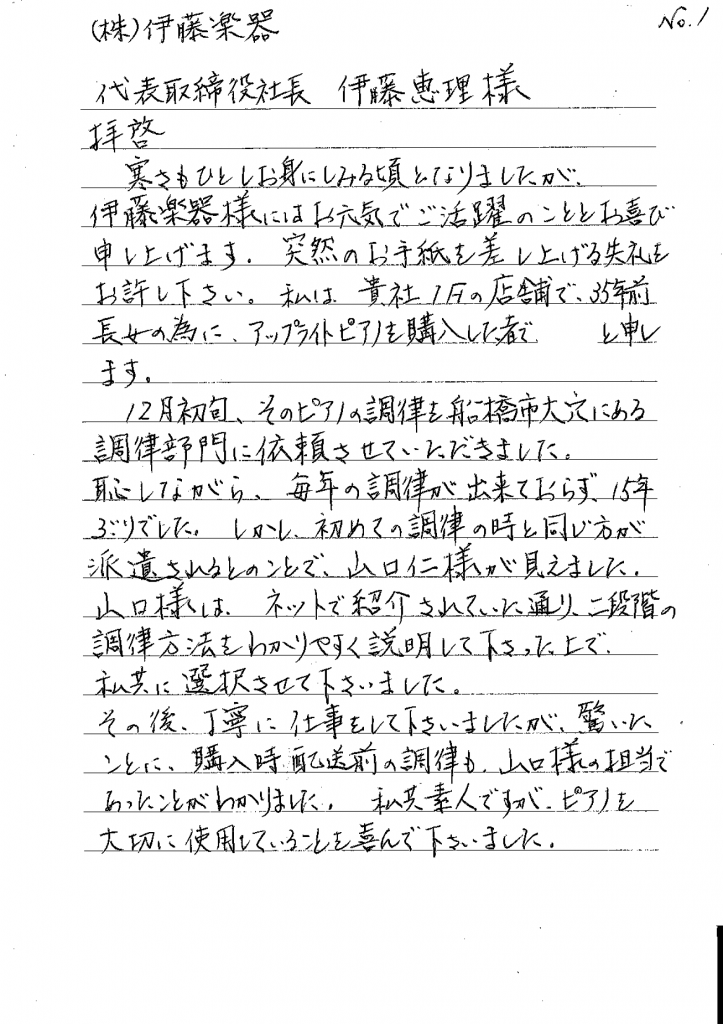 No.1
(株)伊藤楽器
代表取締役社長 伊藤恵理様
拝啓
寒さもひとしお身にしみる頃となりましたが、
伊藤楽器様にはお元気でご活躍のこととお喜び
申し上げます。突然のお手紙を差し上げる失礼を
お許し下さい。私は、貴社1Fの店舗で、35年前
長女の為に、アップライトピアノを購入した者で と申し
ます。
12月初旬、そのピアノの調律を船橋市大穴にある
調律部門に依頼させていただきました。
恥しながら、毎年の調律が出来ておらず、15年
ぶりでした。しかし、初めての調律の時と同じ方が
派遣されるとのことで、山口仁様が見えました。
山口様は、ネットで紹介されていた通り、二段階の
調律方法をわかりやすく説明して下さった上で、
私共に選択させて下さいました。
その後、丁寧に仕事をして下さいましたが、驚いた
ことに、購入時配送前の調律も、山口様の担当で
あったことがわかりました。私共素人ですが、ピアノを
大切に使用していることを喜んで下さいました。